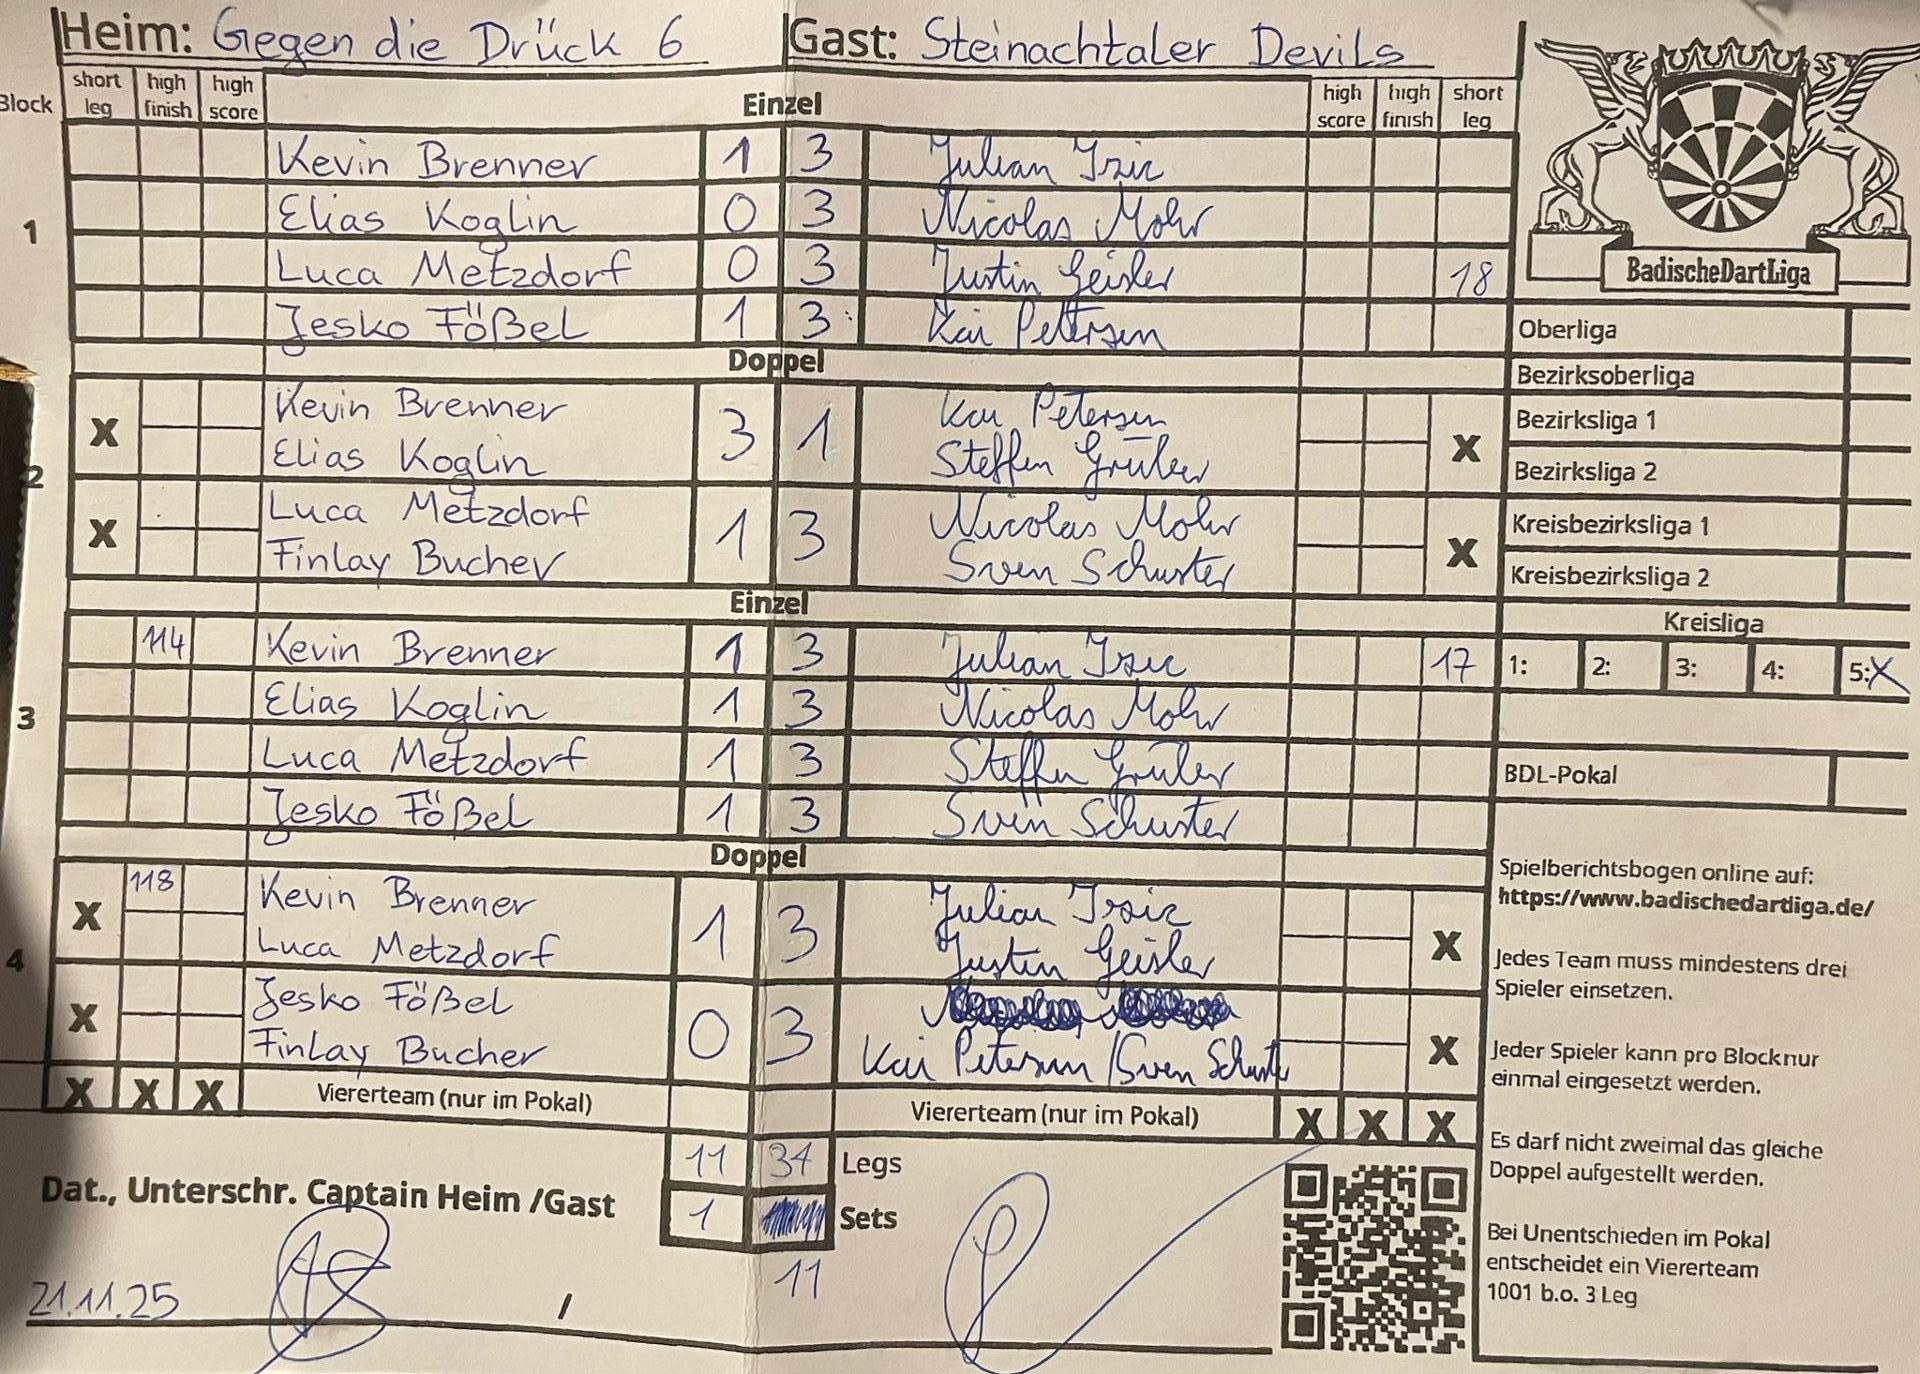 Heim: Gegen die Drück 6 Gast: Steinachtaler Devils
Block short leg high finish high score Einzel high score high finish short leg
1
Kevin Brenner 1 3 Julian Isic
Elias Koglin 0 3 Nicolas Mohr
Luca Metzdorf 0 3 Justin Geisler 18
Jesko Fößel 1 3 Kai Petersen
Doppel
2
X Kevin Brenner 3 1 Kai Petersen X
Elias Koglin Steffen Grüber
X Luca Metzdorf 1 3 Nicolas Mohr X
Finlay Bucher Sven Schuster
Einzel
3
114 Kevin Brenner 1 3 Julian Isic 17
Elias Koglin 1 3 Nicolas Mohr
Luca Metzdorf 1 3 Steffen Grüber
Jesko Fößel 1 3 Sven Schuster
Doppel
4
X 118 Kevin Brenner 1 3 Julian Isic X
Luca Metzdorf Justin Geisler
X Jesko Fößel 0 3 X
Finlay Bucher Kai Petersen / Sven Schuster
X X X Viererteam (nur im Pokal) Viererteam (nur im Pokal) X X X
11 34 Legs
Dat., Unterschr. Captain Heim /Gast 1 Sets
11
21.11.25 /
BadischeDartLiga
Oberliga
Bezirksoberliga
Bezirksliga 1
Bezirksliga 2
Kreisbezirksliga 1
Kreisbezirksliga 2
Kreisliga
1: 2: 3: 4: 5:X
BDL-Pokal
Spielberichtsbogen online auf:
https://www.badischedartliga.de/
Jedes Team muss mindestens drei
Spieler einsetzen.
Jeder Spieler kann pro Block nur
einmal eingesetzt werden.
Es darf nicht zweimal das gleiche
Doppel aufgestellt werden.
Bei Unentschieden im Pokal
entscheidet ein Viererteam
1001 b.o. 3 Leg